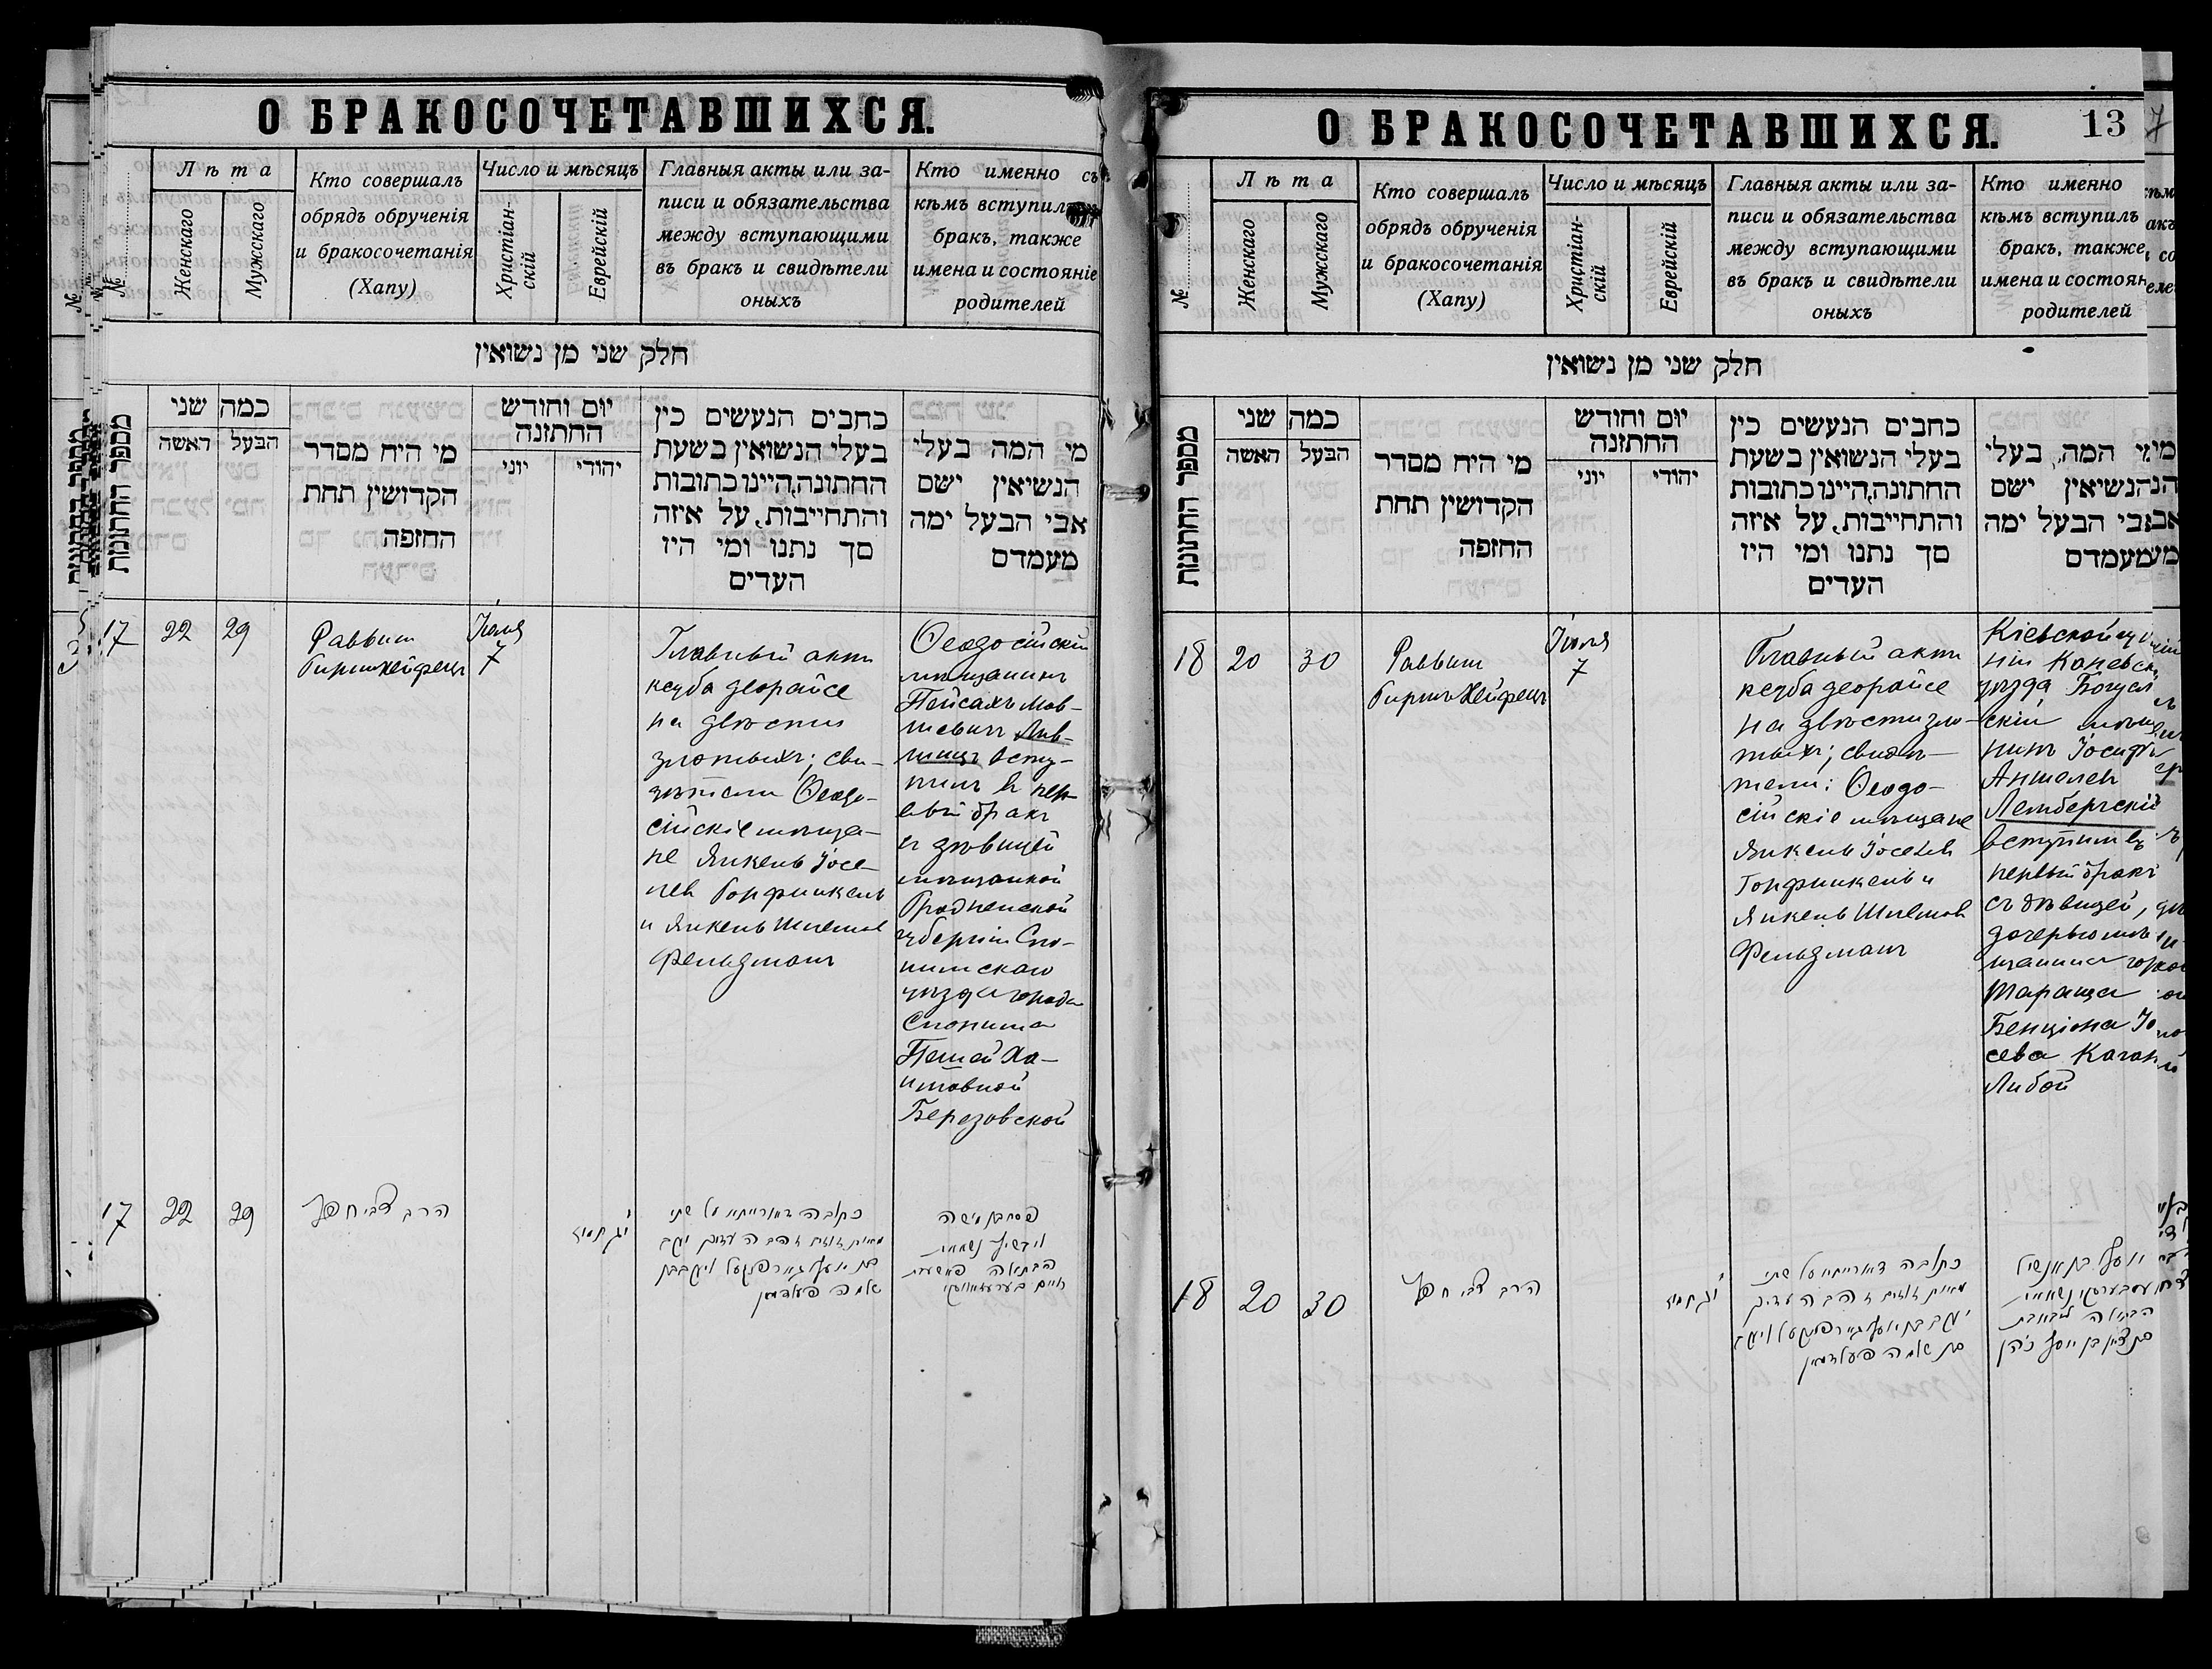 О БРАКОСОЧЕТАВШИХСЯ.
№
Лѣта
Женскаго
Мужскаго
Кто совершалъ
обрядъ обрученія
и бракосочетанія
(Хапу)
Число и мѣсяцъ
Христіан-
скій
Еврейскій
Главныя акты или за-
писи и обязательства
между вступающими
въ бракъ и свидѣтели
оныхъ
Кто именно съ
кѣмъ вступилъ
бракъ, также
имена и состояніе
родителей
חלק שני מן נשואין
מספר החתונות
כמה שני
האשה
הבעל
מי היח מסדר
הקדושין תחת
החזפה
יום וחודש
החתזנה
יוני
יהודי
כחבים הנעשים כין
בעלי הנשואין בשעת
החתונה,היינו כתובות
והתחייבות, על איזה
סך נתנו ומי היז
העדים
מי המה בעלי
הנשיאין ישם
אבי הבעל ימה
מעמדם
17
22
29
Раввин
Гиршъ Хейфецъ
Іюля
7
Главный актъ
кесуба деорайсе
на двѣсти
злотыхъ; сви-
дѣтели Ѳеодо-
сійскіе мѣща-
не Янкель Іосе-
лев Гонфинкель
и Янкель Шлемов
Фельдманъ
Ѳеодосійскій
мѣщанинъ
Пейсахъ Мов-
шевичъ Лив-
шицъ всту-
пилъ в пер-
вый бракъ
съ дѣвицей
мѣщанкой
Гродненской
губерніи Сло-
нимскаго
уѣзда города
Слонима
Пешей Ха-
имовной
Березовской
17
22
29
הרב צבי חפץ
יג תמוז
כתובה דאורייתא על שתי
מאות זוזים זהב העדים יעקב
בן יוסף גארפינקעל ויעקב בן
שלמה פעלדמאן
פסח בן משה
ליבשיץ נשא את
הבתולה פעשע בת
חיים בערעזאווסקי
О БРАКОСОЧЕТАВШИХСЯ.
13
№
Лѣта
Женскаго
Мужскаго
Кто совершалъ
обрядъ обрученія
и бракосочетанія
(Хапу)
Число и мѣсяцъ
Христіан-
скій
Еврейскій
Главныя акты или за-
писи и обязательства
между вступающими
въ бракъ и свидѣтели
оныхъ
Кто именно
кѣмъ вступилъ
бракъ, также
имена и состоян
родителей
חלק שני מן נשואין
מספר החתונות
כמה שני
האשה
הבעל
מי היח מסדר
הקדושין תחת
החזפה
יום וחודש
החתזנה
יוני
יהודי
כחבים הנעשים כין
בעלי הנשואין בשעת
החתונה,היינו כתובות
והתחייבות, על איזה
סך נתנו ומי היז
העדים
מי המה, בעלי
הנשיאין ישם
אבי הבעל ימה
מעמדם
18
20
30
Раввин
Гиршъ Хейфецъ
Іюля
7
Главный актъ
кесуба деорайсе
на двѣсти зло-
тыхъ; свидѣ-
тели: Ѳеодо-
сійскіе мѣщане
Янкель Іоселев
Гонфинкель и
Янкель Шлемов
Фельдманъ
Кіевской гу
ніи Каневск
уѣзда Богусл
скій мѣща
нинъ Іосифъ
Аншелев
Лембергскій
вступилъ въ
первый бракъ
съ дѣвицей,
дочерью мѣ
щанина горо
Тараща
Бенціона Іо
сева Каган
Либой
18
20
30
הרב צבי חפץ
יג תמוז
כתובה דאורייתא על שתי
מאות זוזים זהב העדים
יעקב בן יוסף גארפינקעל ויעקב
בן שלמה פעלדמאן
יוסף בן אנשיל
לעמבערסקי נשא את
הבתולה ליבא בת
בן ציון בן יוסף כהן